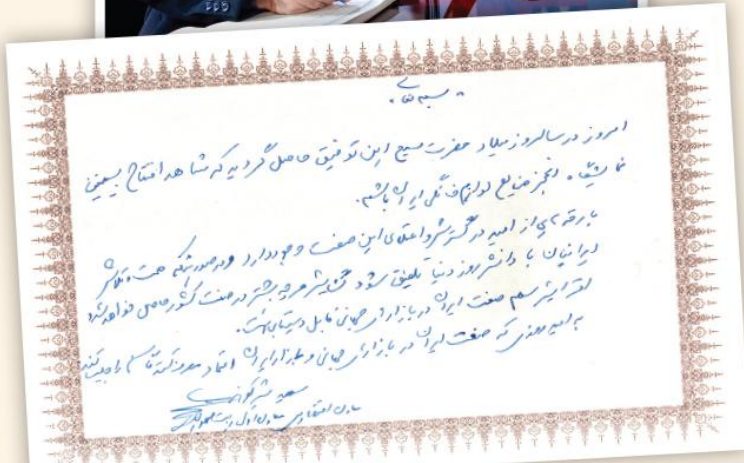 بسمه تعالی
امروز در سالروز میلاد حضرت مسیح این توفیق حاصل گردید که شاهد افتتاح بیستمین
نمایشگاه انجمن صنایع لوازم خانگی ایران باشم.
بارقه‌هایی از امید در گسترش و اعتلای این صنعت وجود دارد و در صورتیکه همت و تلاش
ایرانیان با دانش روز دنیا تلفیق شود گشایش هر چه بیشتر در صنعت کشور حاصل خواهد شد
افزایش سهم صنعت ایران در بازارهای جهانی قابل دستیابی است.
به امید روزی که صنعت ایران در بازارهای جهانی و بازار ایران اعتماد
سعید
معاون اقتصادی معاون اول